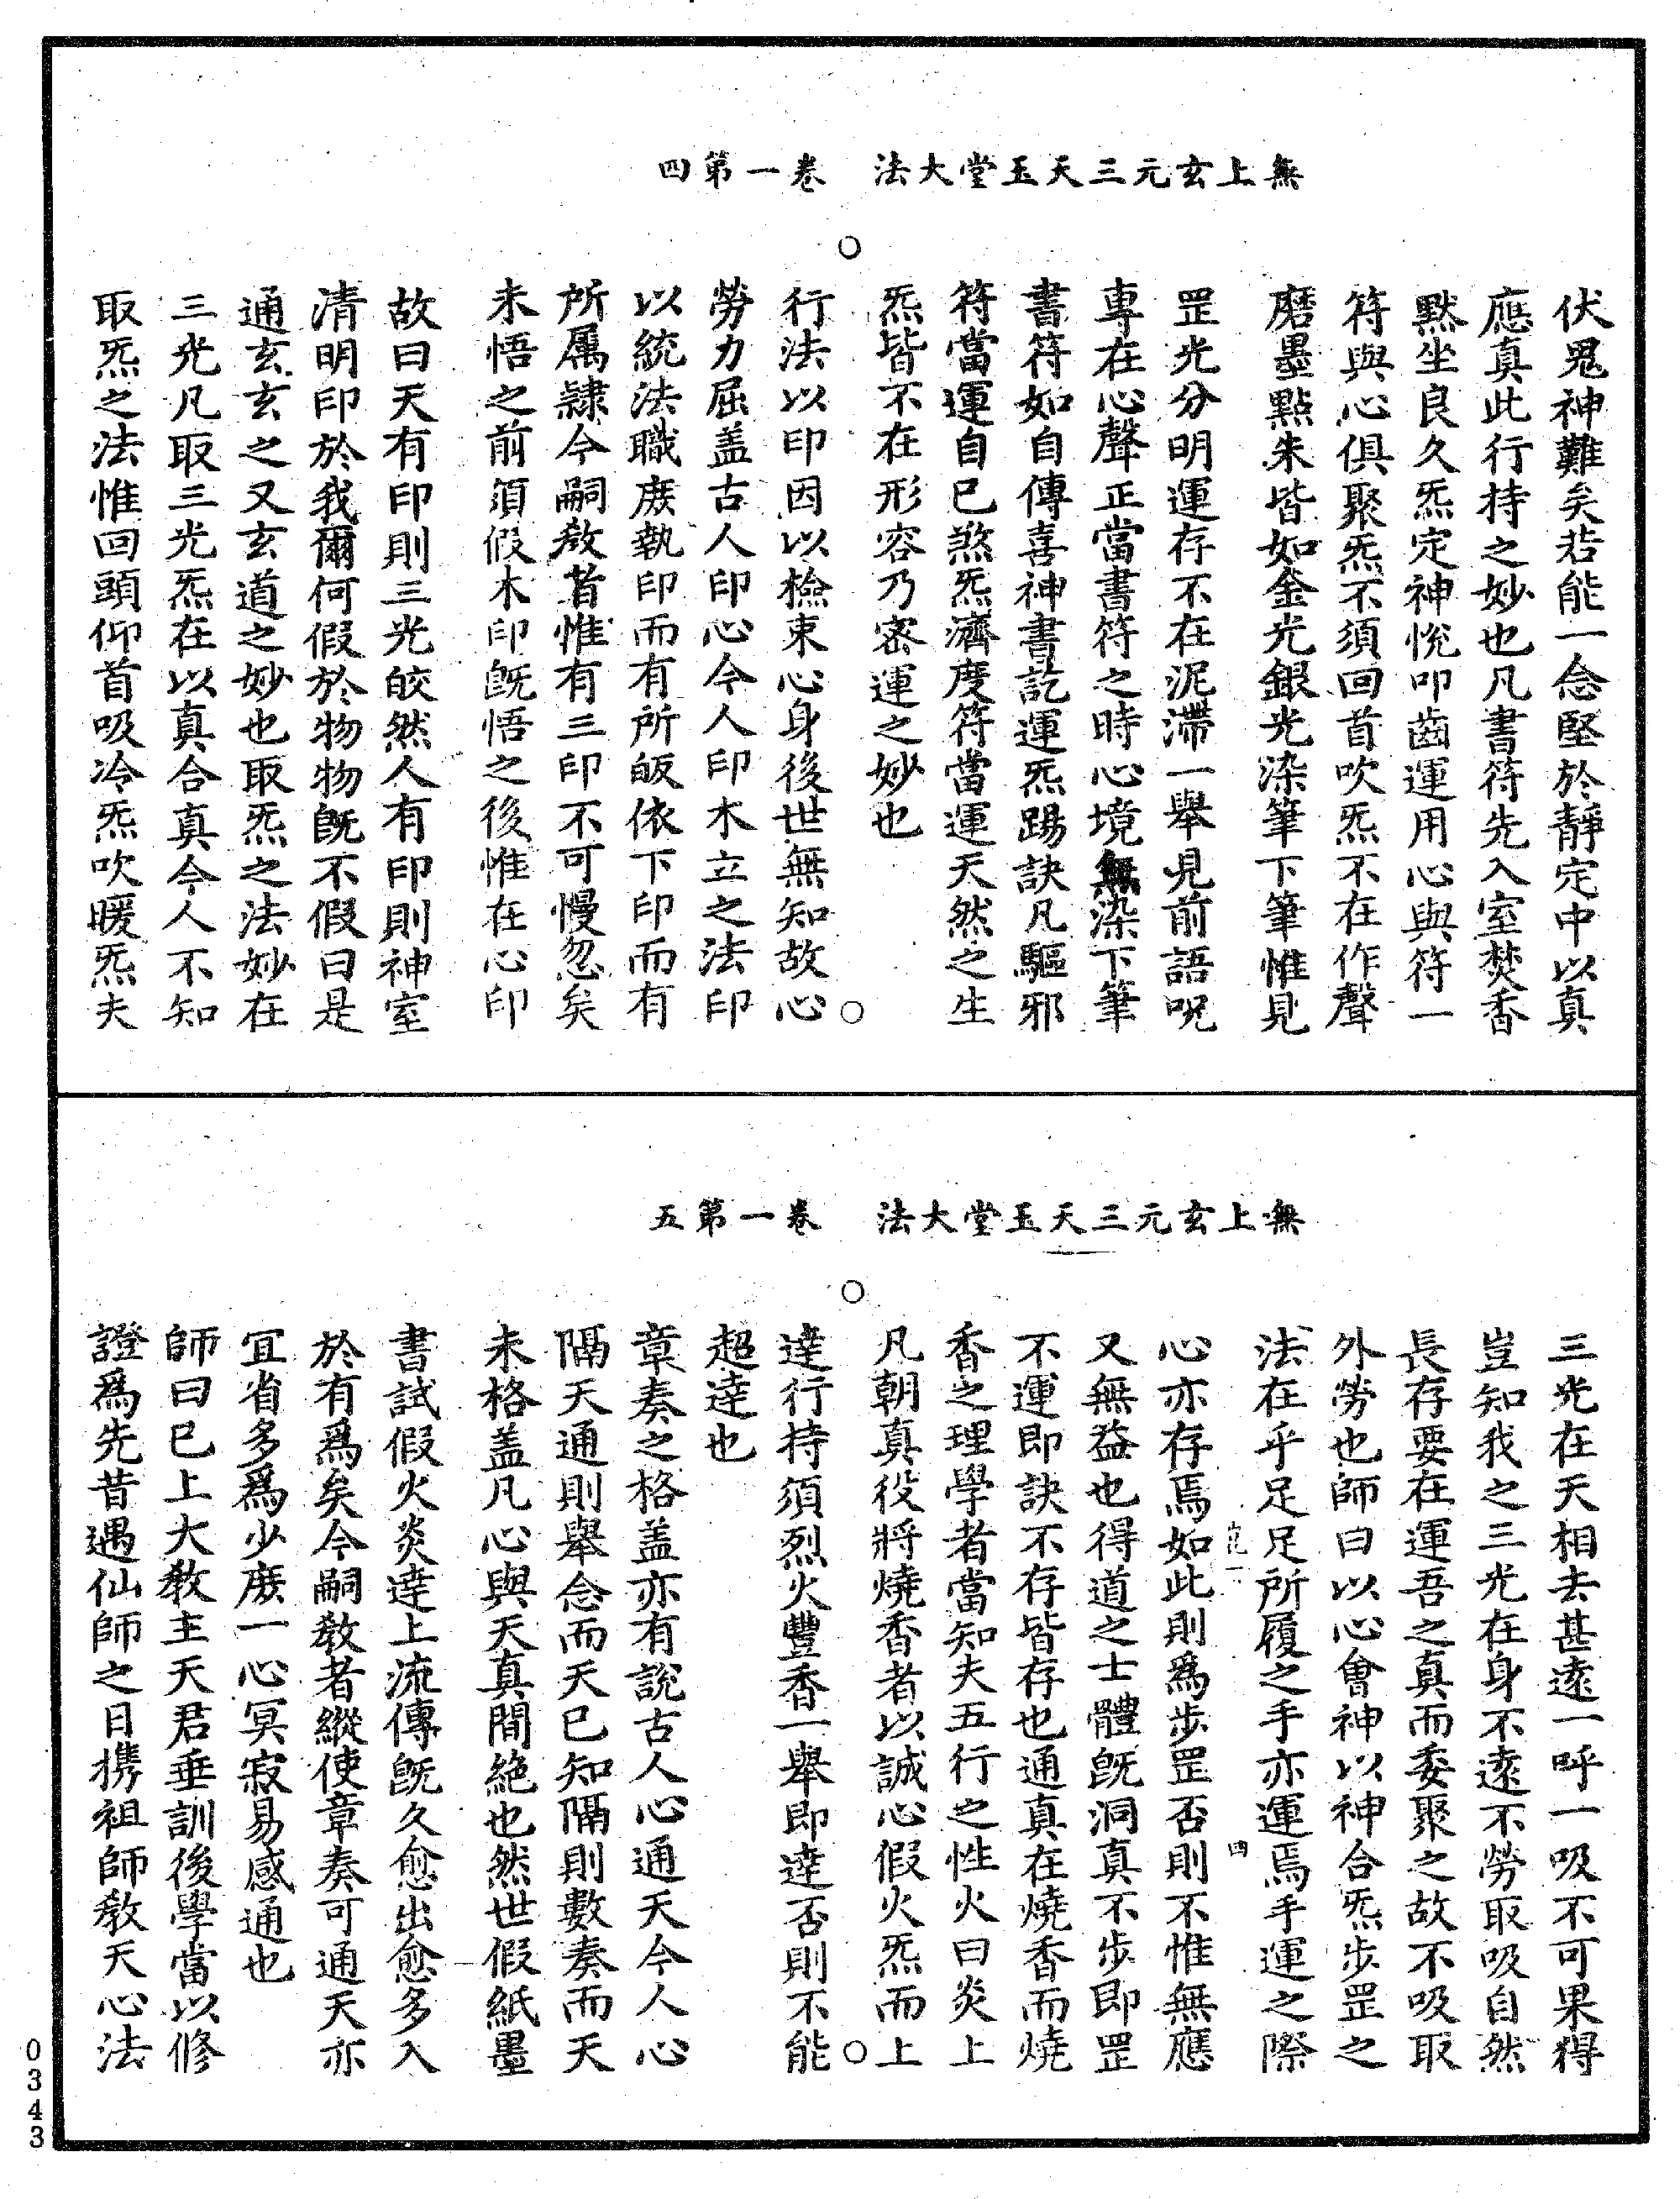 無上玄元三天玉堂大法　卷一第四
伏鬼神難矣若能一念堅於靜定中以真
應真此行持之妙也凡書符先入室焚香
黙坐良久炁定神恱叩齒運用心與符一
符與心俱聚炁不須回首吹炁不在作聲
磨墨點朱皆如金光銀光染筆下筆惟見
罡光分明運存不在泥滯一舉見前語呪
專在心聲正當書符之時心境無染下筆
書符如自傳喜神書訖運炁踢訣凡驅邪
符當運自已煞炁濟度符當運天然之生
炁皆不在形容乃密運之妙也
行法以印因以檢束心身後世無知故心
勞力屈盖古人印心今人印木立之法印
以統法職庻執印而有所皈依下印而有
所屬隷今嗣教者惟有三印不可慢忽矣
未悟之前須假木印旣悟之後惟在心印
故曰天有印則三光皎然人有印則神室
清明印於我爾何假於物物旣不假曰是
通玄玄之又玄道之妙也取炁之法妙在
三光凡取三光炁在以真合真今人不知
取炁之法惟回頭仰首吸冷炁吹暖炁夫
無上玄元三天玉堂大法　卷一第五
三光在天相去甚遠一呼一吸不可果得
豈知我之三光在身不遠不勞取吸自然
長存要在運吾之真而委聚之故不吸取
外勞也師曰以心會神以神合炁步罡之
法在乎足足所履之手亦運焉手運之際
四
心亦存焉如此則爲步罡否則不惟無應
又無益也得道之士體旣洞真不步即罡
不運即訣不存皆存也通真在燒香而燒
香之理學者當知夫五行之性火曰炎上
凡朝真役將燒香者以誠心假火炁而上
達行持須烈火豐香一舉即達否則不能
超達也
章奏之格盖亦有說古人心通天今人心
隔天通則舉念而天已知隔則數奏而天
未格盖凡心與天真間絶也然世假紙墨
書試假火炎達上流傳旣久愈出愈多入
於有爲矣今嗣教者縱使章奏可通天亦
宜省多爲少庻一心冥寂易感通也
師曰巳上大教主天君垂訓後學當以修
證爲先昔遇仙師之日携祖師教天心法
0343